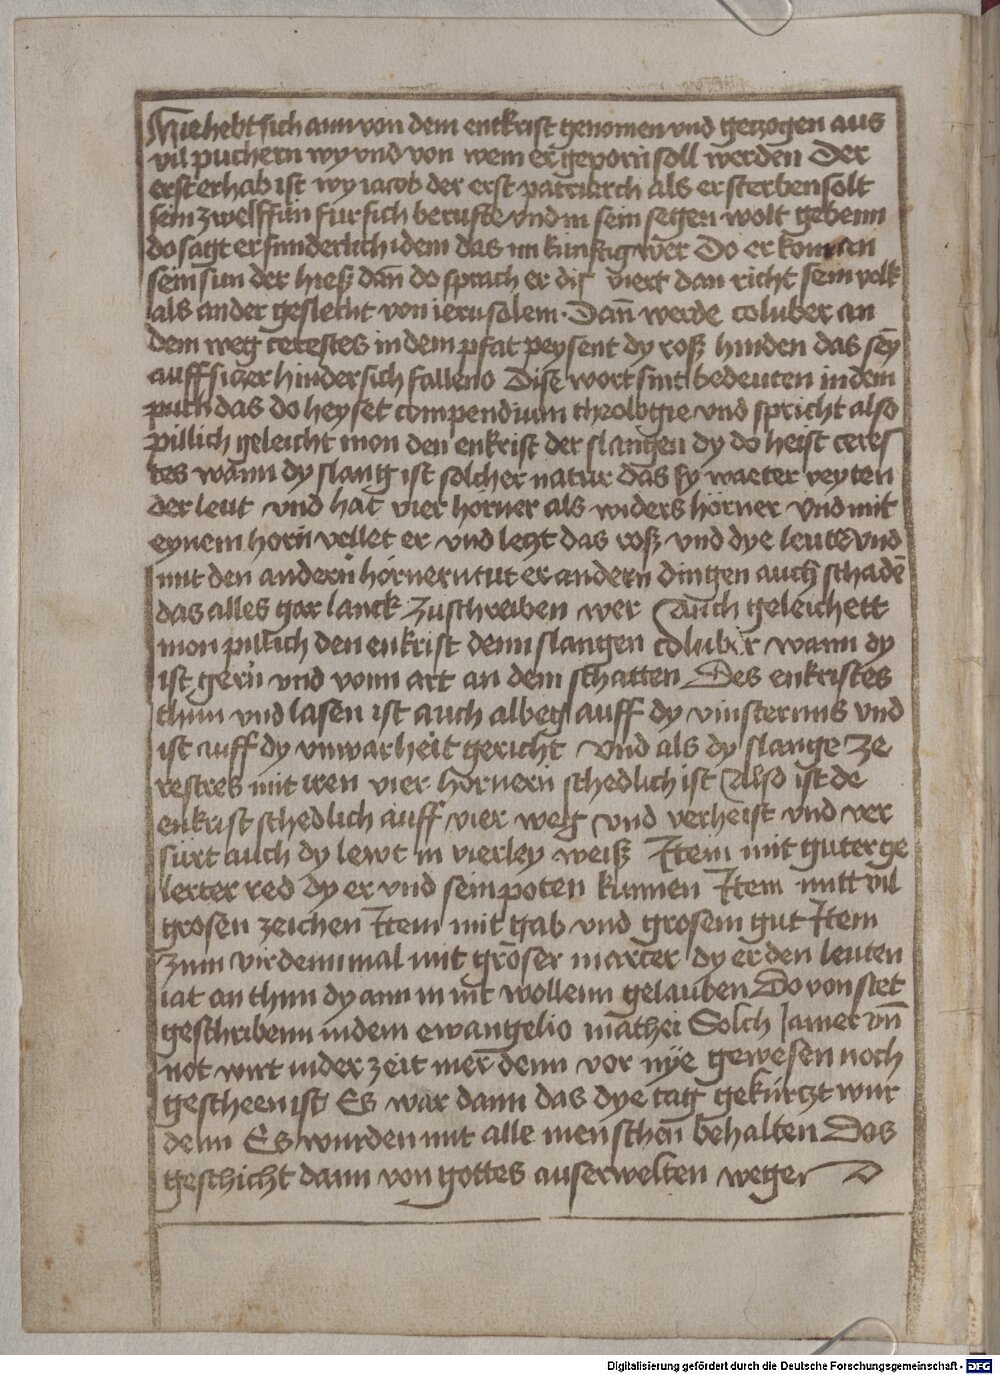 Hie hebt sich ann von dem entkrist genomen vnd getzogen aus
vil puchern wy vnd von wem er geporn soll werden Der
erst erhab ist wy iacob der erst patriarch als er sterben solt
sein zwelff sun fur sich berufte vnd in sein segen wolt gebenn
do sagt er sunderlich idem das im kunftig wer Do er kom an
sein sun der hieß dañ do sprach er dis wirt dan richt sein volk
als ander geslecht von ierusalem. Dañ werde coluber an
dem weg cerestes in dem pfat peysent dy roß hinden das seẏ
auff siczer hindersich fallend Dise wort sint bedeuten in dem
puch das do heyset compendium theologie vnd spricht also
pillich geleicht mon den enkrist der slangen dy do heist ceres
tes wann dy slang ist solcher natur das sy waeter reyten
der leut vnd hat vier horner als widers hörner vnd mit
eynem horñ vellet er vnd leczt das roß vnd dye leute vnd
mit den andern hornern tut er andern dingen auch schadē
das alles gar lanck zuschreiben wer Auch geleichett
mon pillich den enkrist denn slangen coluber wann dy
ist gern vnd vonn art an dem schatten Des enkristes
thun vnd lasen ist auch albeg auff dy vinsternus vnd
ist auff dy vnwarheit gericht vnd als dy slange ze
restes mit iren vier hornern schedlich ist Also ist de
enkrist schedlich auff vier weg vnd verheist vnd ver
furt auch dy lewt in vierley weiß Item mit guter ge
lerter red dy er vnd sein poten kunnen Item mitt vil
grosen zeichen Item mit gab vnd grosem gut Item
zum virdenn mal mit groser marter dy er den leuten
lat an thun dy ann in nit wollenn gelauben Do von stet
geschribenn in dem ewangelio mathei Solch Jamer vñ
not wirt in der zeit mer denn vor nye gewesen noch
gescheen ist Es war dann das dye tag gekürczt wur
denn Es wurden nit alle menschen behalten Das
geschicht dann von gottes auserwelten wegen
Digitalisierung gefördert durch die Deutsche Forschungsgemeinschaft - DFG